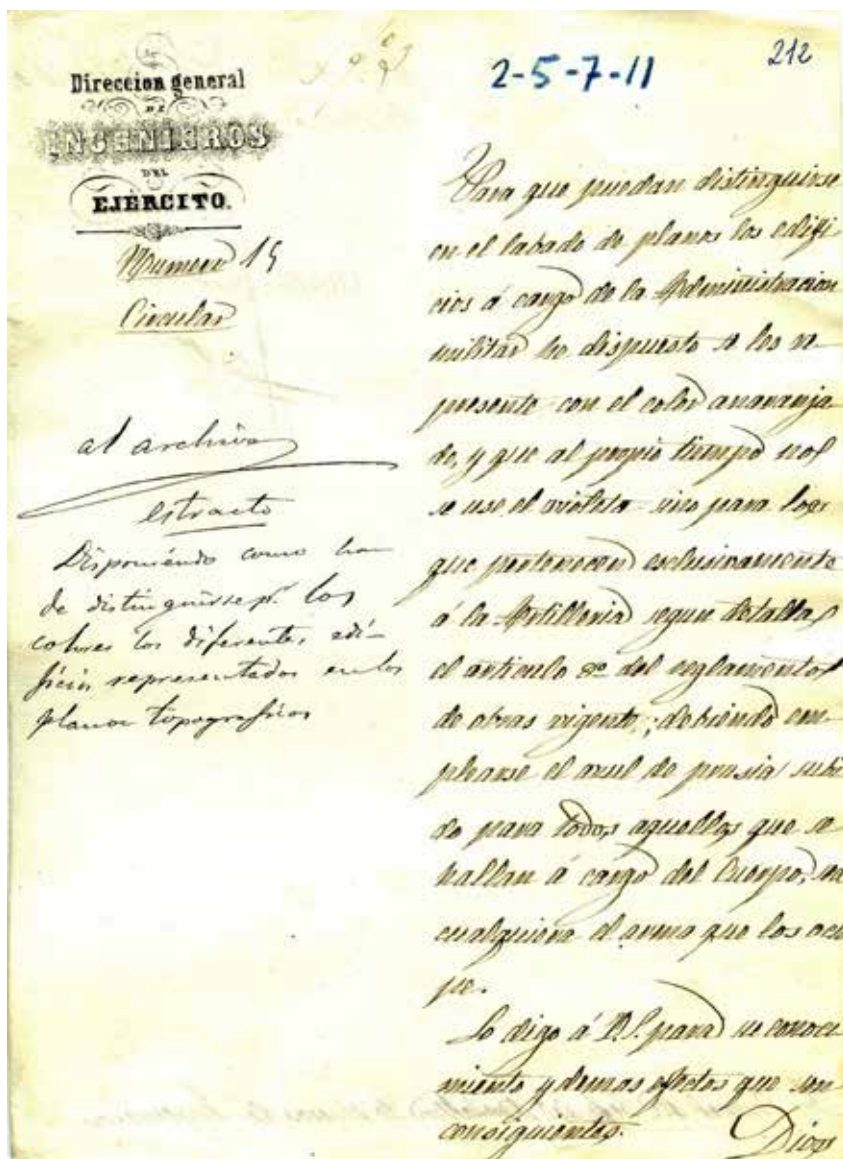 212
2-5-7-11
Direccion general
DE
INGENIEROS
DEL
EJÉRCITO.
Numero 15
Circular
al archivo
estracto
Disponiendo como han
de distinguirse pr. los
colores los diferentes edi-
ficios representados en los
planos topograficos
Para que puedan distinguirse
en el labado de planos los edifi
cios á cargo de la Administracion
militar he dispuesto se les re-
presente con el color anaranja-
do, y que al propio tiempo no
se use el violeta sino para los
que pertenecen esclusivamente
á la Artilleria segun detalla
el articulo 8º del reglamento
de obras vigente; debiendo em-
plearse el azul de prusia subi
do para todos aquellos que se
hallan á cargo del Cuerpo, sea
cualquiera el arma que los ocu
pe.
Lo digo á V.S. para su conoci
miento y demas efectos que son
consiguientes.
Dios